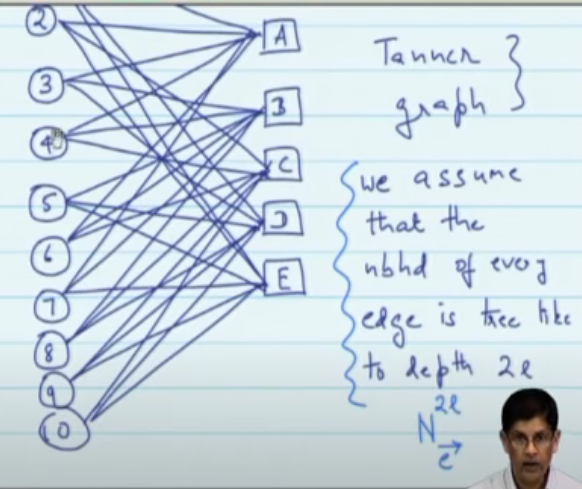 2
3
4
5
6
7
8
9
10
A
B
C
D
E
Tanner
graph
we assume
that the
nbhd of every
edge is tree like
to depth 2l
N 2l
e